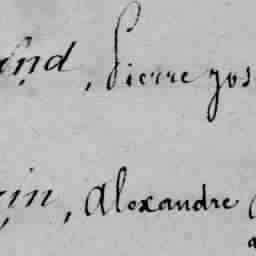 ind, Pierre Jos
in, Alexandre